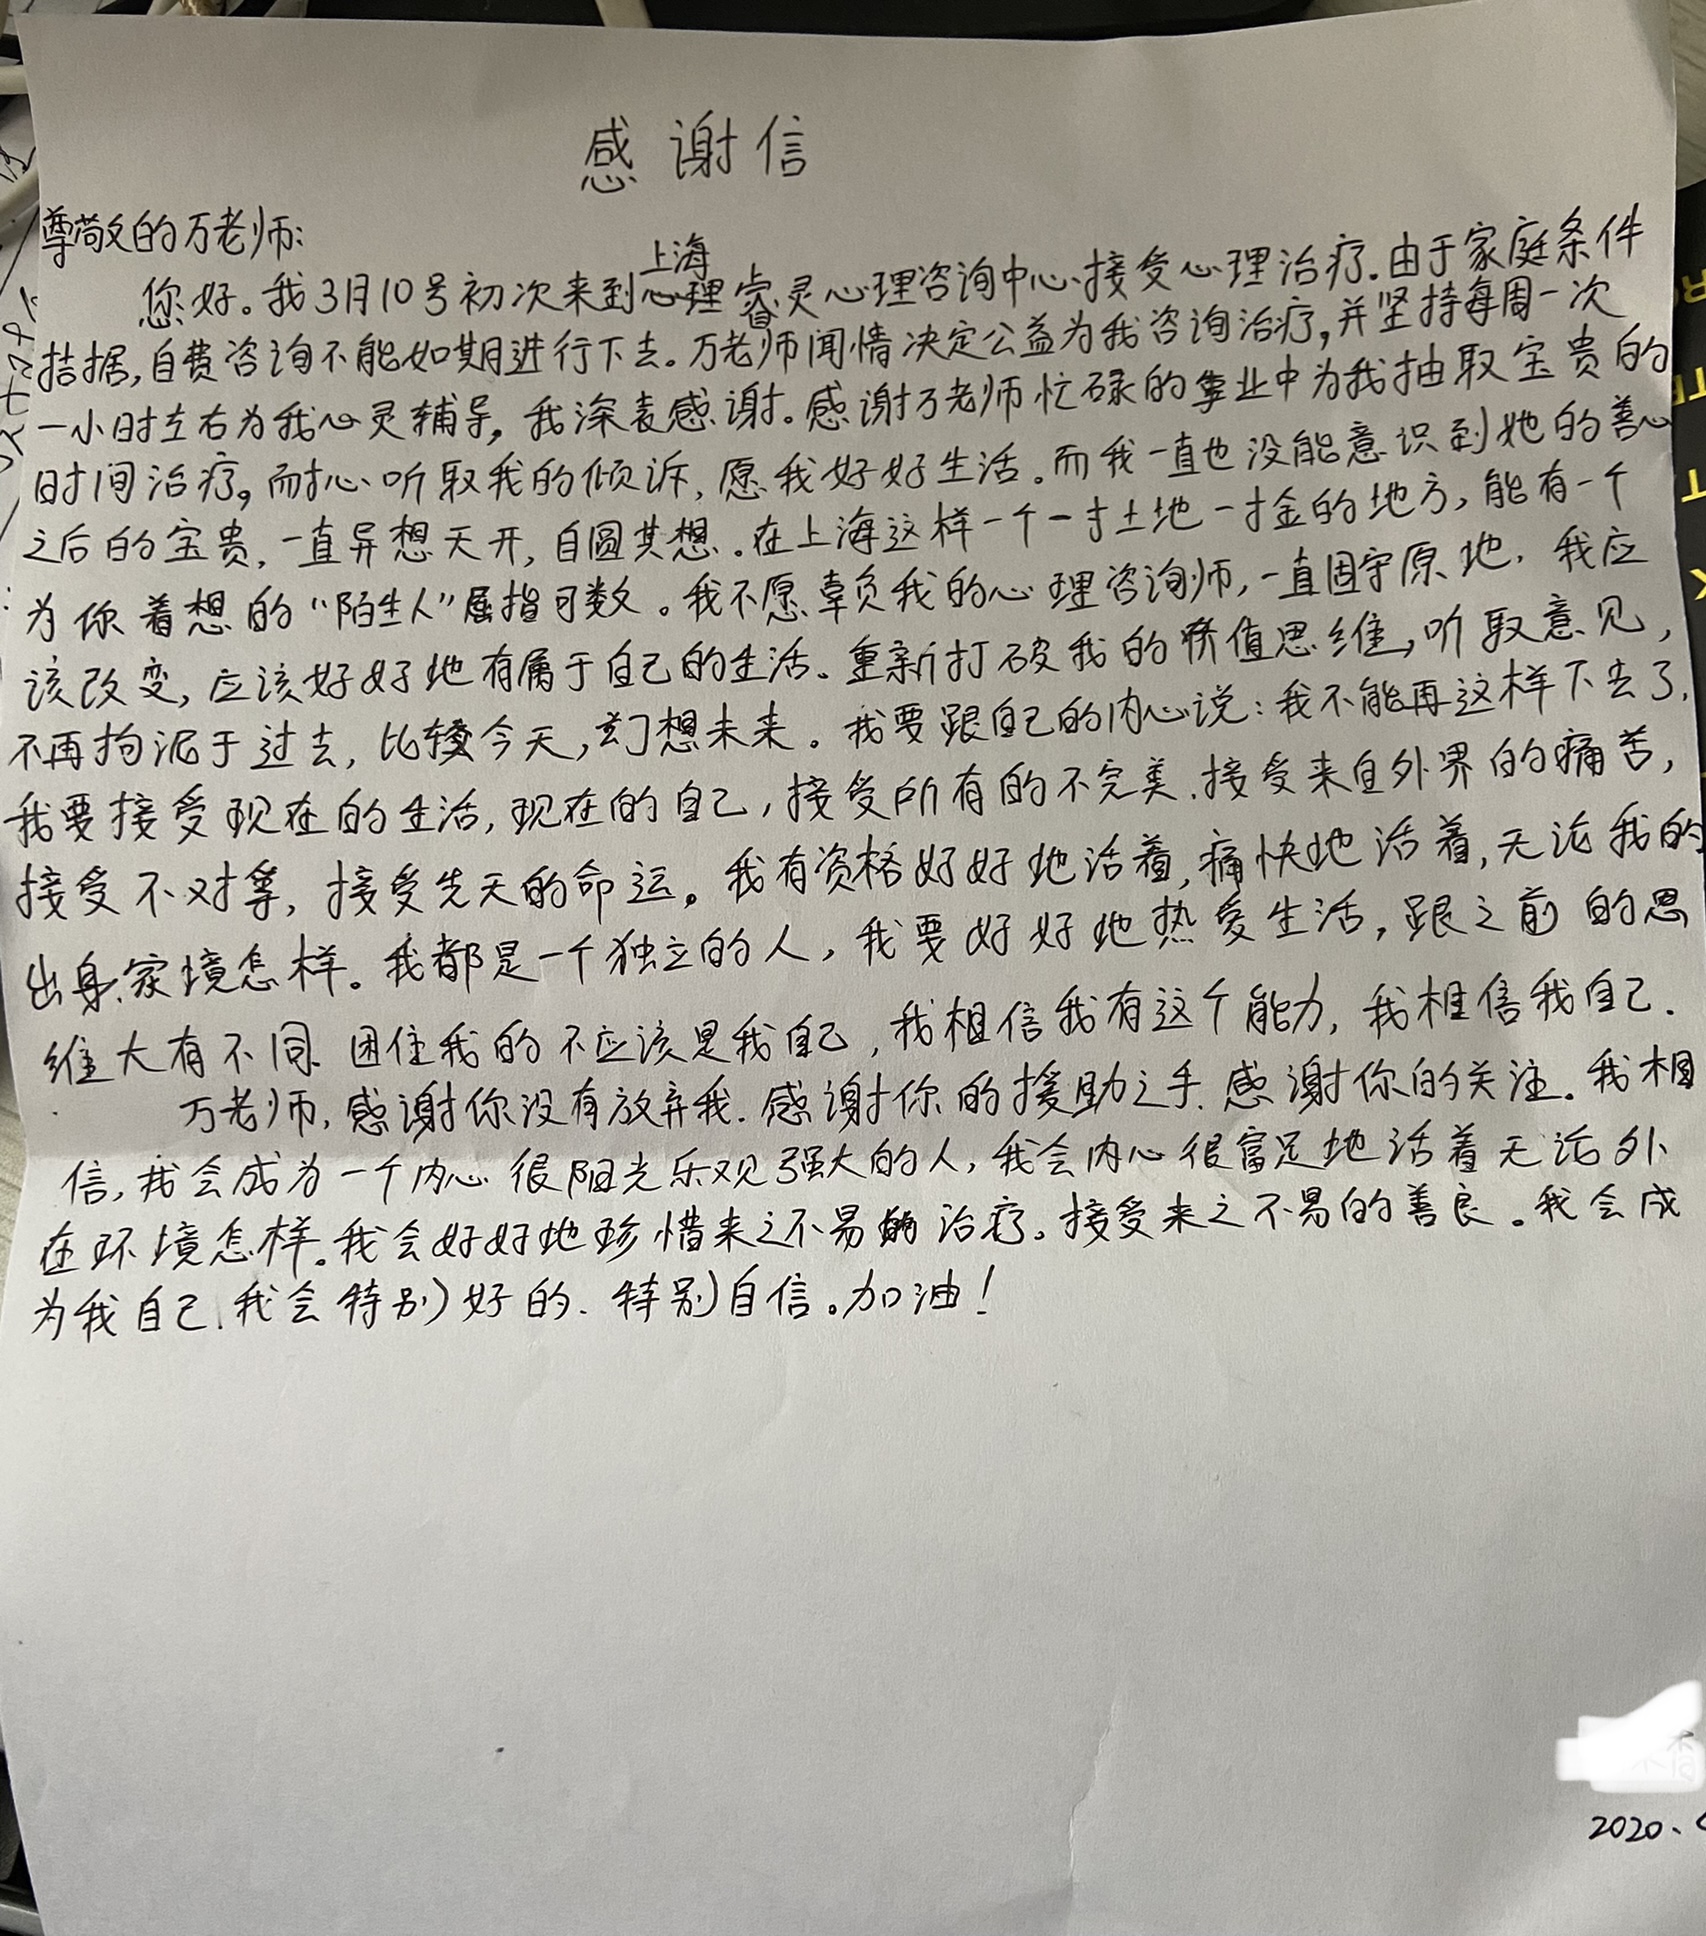 感谢信
尊敬的万老师:
您好。我3月10号初次来到上海睿灵心理咨询中心接受心理治疗.由于家庭条件
拮据,自费咨询不能如期进行下去。万老师闻情决定公益为我咨询治疗,并坚持每周一次
一小时左右为我心灵辅导,我深表感谢。感谢万老师忙碌的事业中为我抽取宝贵的
时间治疗。耐心听取我的倾诉,愿我好好生活.而我一直也没能意识到她的善心
之后的宝贵,一直异想天开,自圆其想.在上海这样一个一寸土地一寸金的地方,能有一个
为你着想的“陌生人”屈指可数。我不愿辜负我的心理咨询师,一直固守原地,我应
该改变,应该好好地有属于自己的生活。重新打破我的价值思维,听取意见,
不再拘泥于过去,比较今天,幻想未来。我要跟自己的内心说:我不能再这样下去了.
我要接受现在的生活,现在的自己,接受所有的不完美.接受来自外界的痛苦,
接受不对等,接受先天的命运。我有资格好好地活着,痛快地活着,无论我的
出身.家境怎样。我都是一个独立的人,我要好好地热爱生活,跟之前的思
维大有不同.困住我的不应该是我自己,我相信我有这个能力,我相信我自己.
万老师,感谢你没有放弃我.感谢你的援助之手.感谢你的关注。我相
信,我会成为一个内心很阳光乐观强大的人,我会内心很富足地活着无论外
在环境怎样。我会好好地珍惜来之不易的治疗。接受来之不易的善良。我会成
为我自己.我会特别好的.特别自信。加油!
2020、